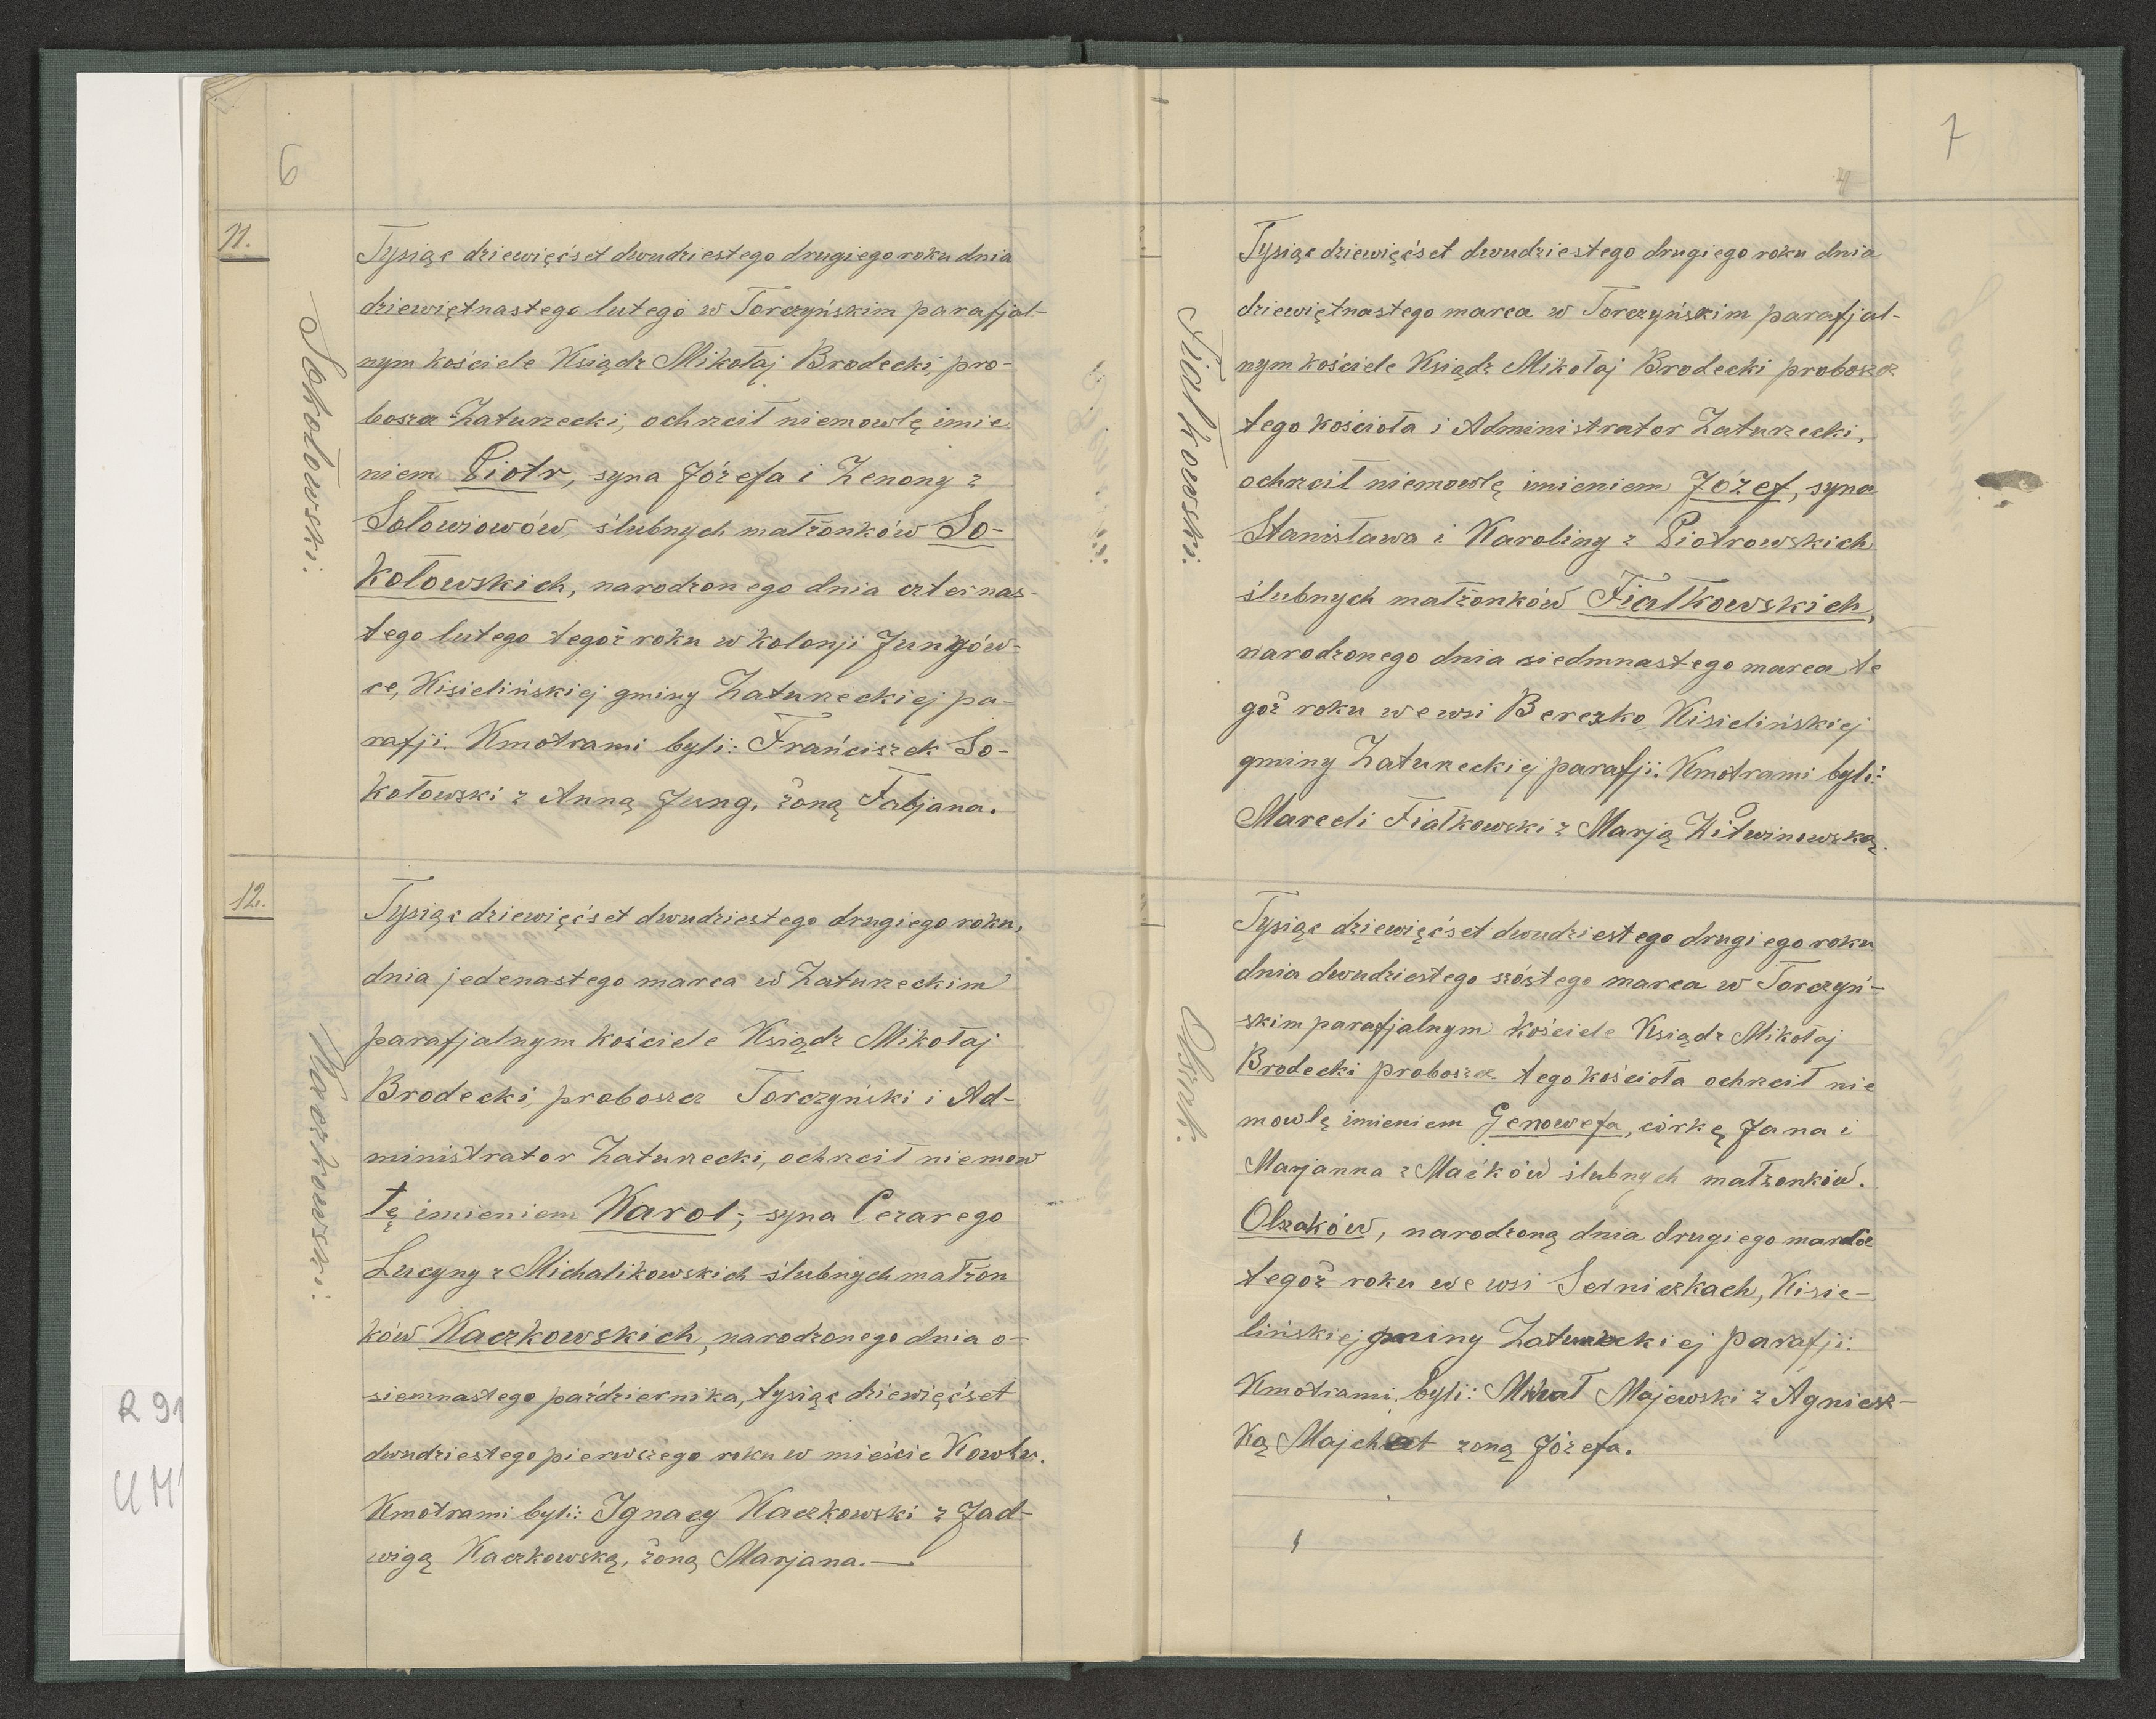 6
11.
Sokołowski.
Tysiąc dziewięćset dwudziestego drugiego roku dnia
dziewiętnastego lutego w Torczyńskim parafjal-
nym kościele Ksiądz Mikołaj Brodecki, pro-
boszcz Zaturzecki, ochrzcił niemowlę imie
niem Piotr, syna Józefa i Zenony z
Sołowiowów ślubnych małżonków So-
kołowskich, narodzonego dnia czternas-
tego lutego tegoż roku w kolonji Jungów-
ce, Kisielińskiej gminy Zaturzeckiej pa-
rafji. Kmotrami byli: Frańciszek So-
kołowski z Anną Jung, żoną Fabjana.
12.
Kaczkowski.
Tysiąc dziewięćset dwudziestego drugiego roku,
dnia jedenastego marca w Zaturzeckim
parafjalnym kościele Ksiądz Mikołaj
Brodecki, proboszcz Torczyński i Ad-
ministrator Zaturzecki, ochrzcił niemow
lę imieniem Karol, syna Cezarego
Lucyny z Michalikowskich ślubnych małżon
ków Kaczkowskich, narodzonego dnia o-
siemnastego października, tysiąc dziewięćset
dwudziestego pierwszego roku w mieście Kowlu.
Kmotrami byli: Ignacy Kaczkowski z Jad-
wigą Kaczkowską, żoną Marjana.
7
Fiałkowski.
Tysiąc dziewięćset dwudziestego drugiego roku dnia
dziewiętnastego marca w Torczyńskim parafjal-
nym kościele Ksiądz Mikołaj Brodecki proboszcz
tego kościoła i Administrator Zaturzecki,
ochrzcił niemowlę imieniem Józef, syna
Stanisława i Karoliny z Piotrowskich
ślubnych małżonków Fiałkowskich,
narodzonego dnia siedmnastego marca te
goż roku we wsi Berezko Kisielińskiej
gminy Zaturzeckiej parafji. Kmotrami byli:
Marceli Fiałkowski z Marją Witwinowską.
Olszak.
Tysiąc dziewięćset dwudziestego drugiego roku
dnia dwudziestego szóstego marca w Torczyń-
skim parafjalnym kościele Ksiądz Mikołaj
Brodecki proboszcz tego kościoła ochrzcił nie
mowlę imieniem Genowefa, córkę Jana i
Marjanna z Maćków ślubnych małżonków.
Olszaków, narodzoną dnia drugiego marca
tegoż roku we wsi Serniczkach, Kisie-
lińskiej gminy Zaturzeckiej parafji.
Kmotrami byli: Michał Majewski z Agniesz-
ką żoną Józefa.